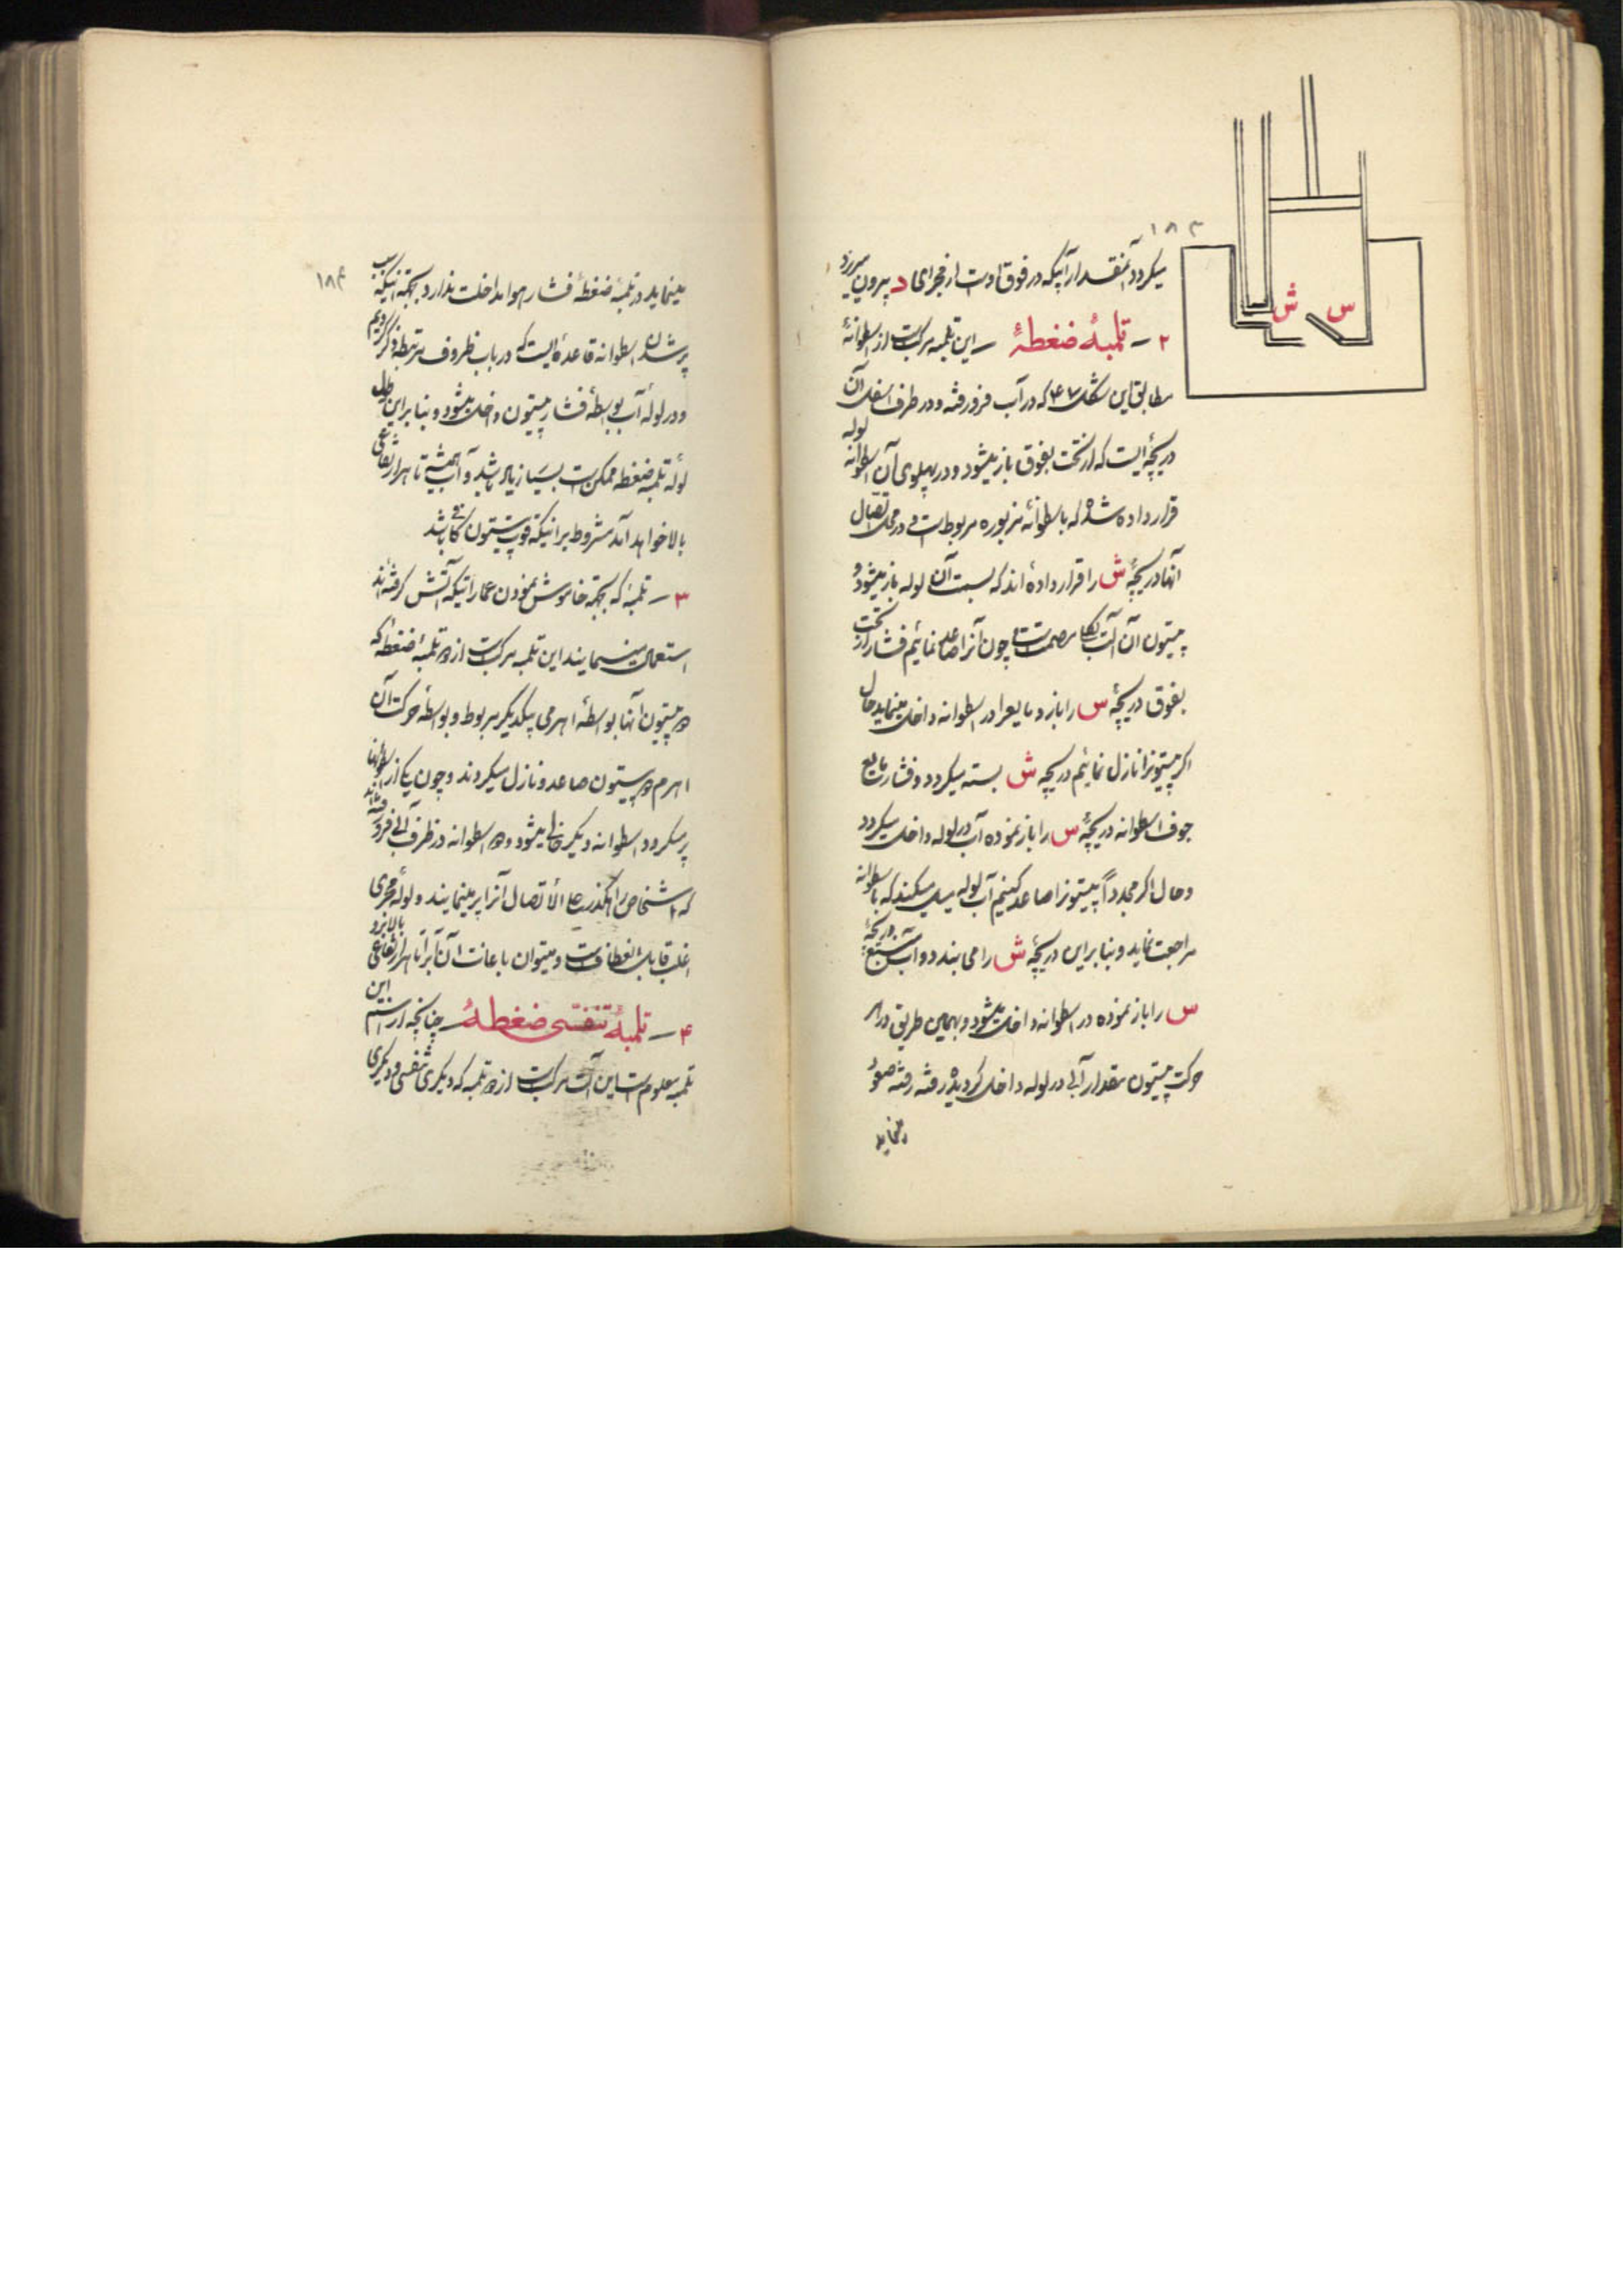 ۱۸۳
میکردد آنمقدار آبیکه در فوق اوست از مجرای د بیرون میریزد
۲ – تلمبهٔ ضغطهٔ – این تلمبه مرکبست از اسطوانهٔ
مطابق این شکل ۴۷ که در آب فرو رفته و در طرف اسفل آن
دریچهٔ ایست که از تحت بفوق باز میشود و در پهلوی آن اسطوانه لوله
قرار داده شده که با اسطوانهٔ مزبوره مربوطست و در محل اتصال
آنها دریچهٔ ش را قرار داده اند که بسمت آن لوله باز میشود و
پیستون آن آلت بکلی مصمت است چون آنرا صاعد نمائیم فشار از تحت
بفوق دریچهٔ س را باز و مایع را در اسطوانه داخل مینماید حال
اکر پیستونرا نازل نمائیم دریچه ش بسته میکردد و فشار مایع
جوف اسطوانه دریچهٔ س را باز نموده آب در لوله داخل میکردد
و حال اکر مجدداً پیستونرا صاعد کنیم آب لوله میل میکند که باسطوانه
مراجعت نماید و بنا براین دریچهٔ ش را می بندد و آب دریچهٔ
س را باز نموده در اسطوانه داخل میشود و بهمین طریق در هر
حرکت پیستون مقدار آبی در لوله داخل کردیده رفته رفته صعود
مینماید
۱۸۴
مینماید در تلمبهٔ ضغطهٔ فشار هوا مداخلت ندارد بجهة اینکه سبب
پر شدن اسطوانه قاعدهٔ ایست که در باب ظروف مرتبطه ذکر کردیم
و در لوله آب بواسطهٔ فشار پیستون داخل میشود و بنا براین طول
لولهٔ تلمبهٔ ضغطه ممکن است بسیار زیاد باشد و آب همیشه تا هر ارتفاعی
بالا خواهد آمد مشروط براینکه قوت پیستون کافی باشد
۳ – تلمبهٔ که بجهة خاموش نمودن عماراتیکه آتش کرفته اند
استعمال مینمایند این تلمبه مرکبست از دو تلمبهٔ ضغطهٔ که
دو پیستون آنها بواسطهٔ اهرمی بیکدیکر مربوط و بواسطهٔ حرکت آن
اهرم دو پیستون صاعد و نازل میکردند و چون یکی از اسطوانها
پر میکردد اسطوانه دیکر خالی میشود و دو اسطوانه در ظرف آبی فرو رفته اند
که اشخاص راهکذر علی الاتصال آنرا پر مینمایند و لولهٔ مجری
اغلب قابل انعطافست و میتوان باعانت آن آبرا تا هر ارتفاعی بالا برد
۴ – تلمبهٔ تنفسی ضغطهٔ – چنانچه از اسم این
تلمبه معلوم است این آلت مرکبست از دو تلمبه که یکی تنفسی و دیکری